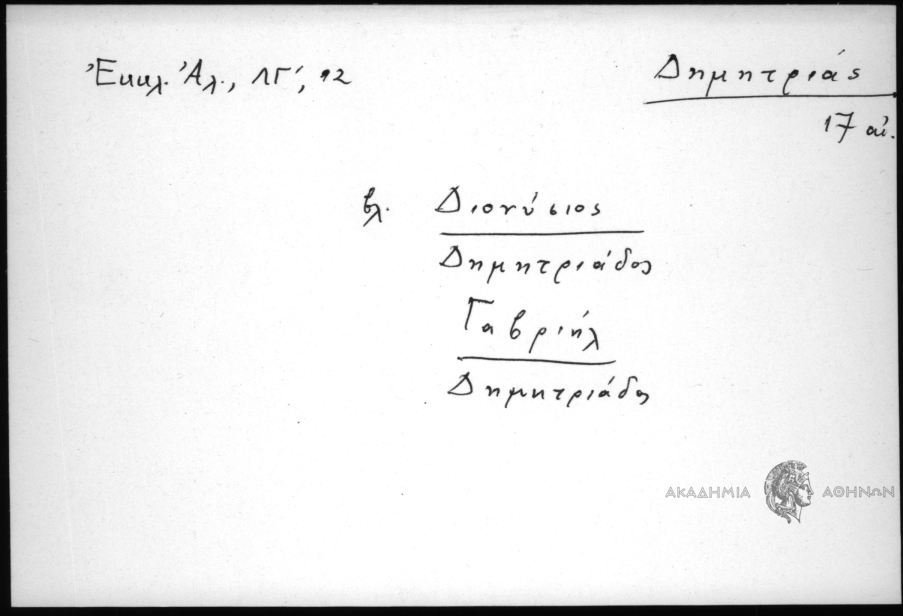 Ἐκκλ. Ἀλ., ΛΓ', 12
Δημητριάς
17 αἰ.
βλ. Διονύσιος
Δημητριάδος
Γαβριήλ
Δημητριάδος
ΑΚΑΔΗΜΙΑ ΑΘΗΝΩΝ